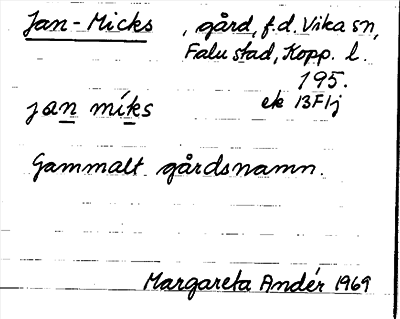 Jan-Micks, gård, f.d. Vika sn,
Falu stad, Kopp. l.
195.
ek 13F1j
jan míks
Gammalt gårdsnamn.
Margareta Andér 1969